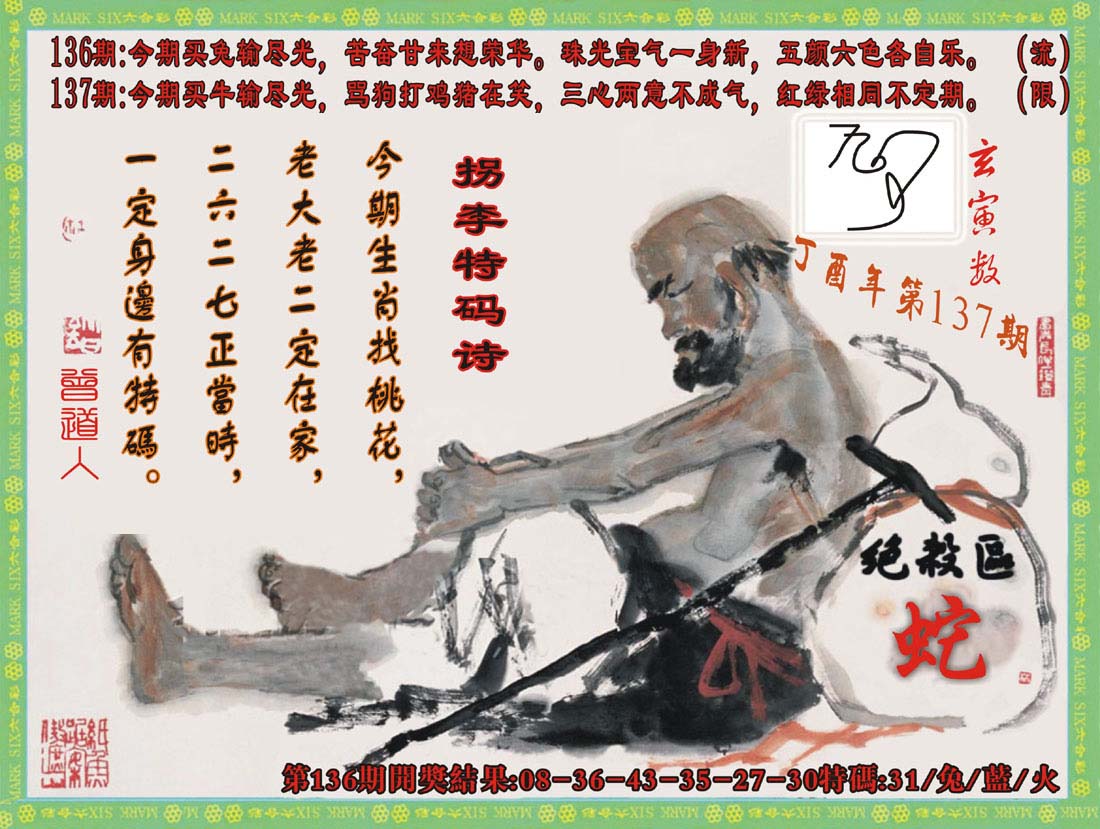 MARK SIX六合彩
136期:今期买兔输尽光，苦奋甘来想荣华。珠光宝气一身新，五颜六色各自乐。（流）
137期:今期买牛输尽光，骂狗打鸡猪在笑，三心两意不成气，红绿相同不定期。（限）
拐李特码诗
今期生肖找桃花，
老大老二定在家，
二六二七正當時，
一定身邊有特碼。
曾道人
玄寅数
丁酉年第137期
绝殺區
蛇
第136期開獎結果:08-36-43-35-27-30特碼:31/兔/藍/火